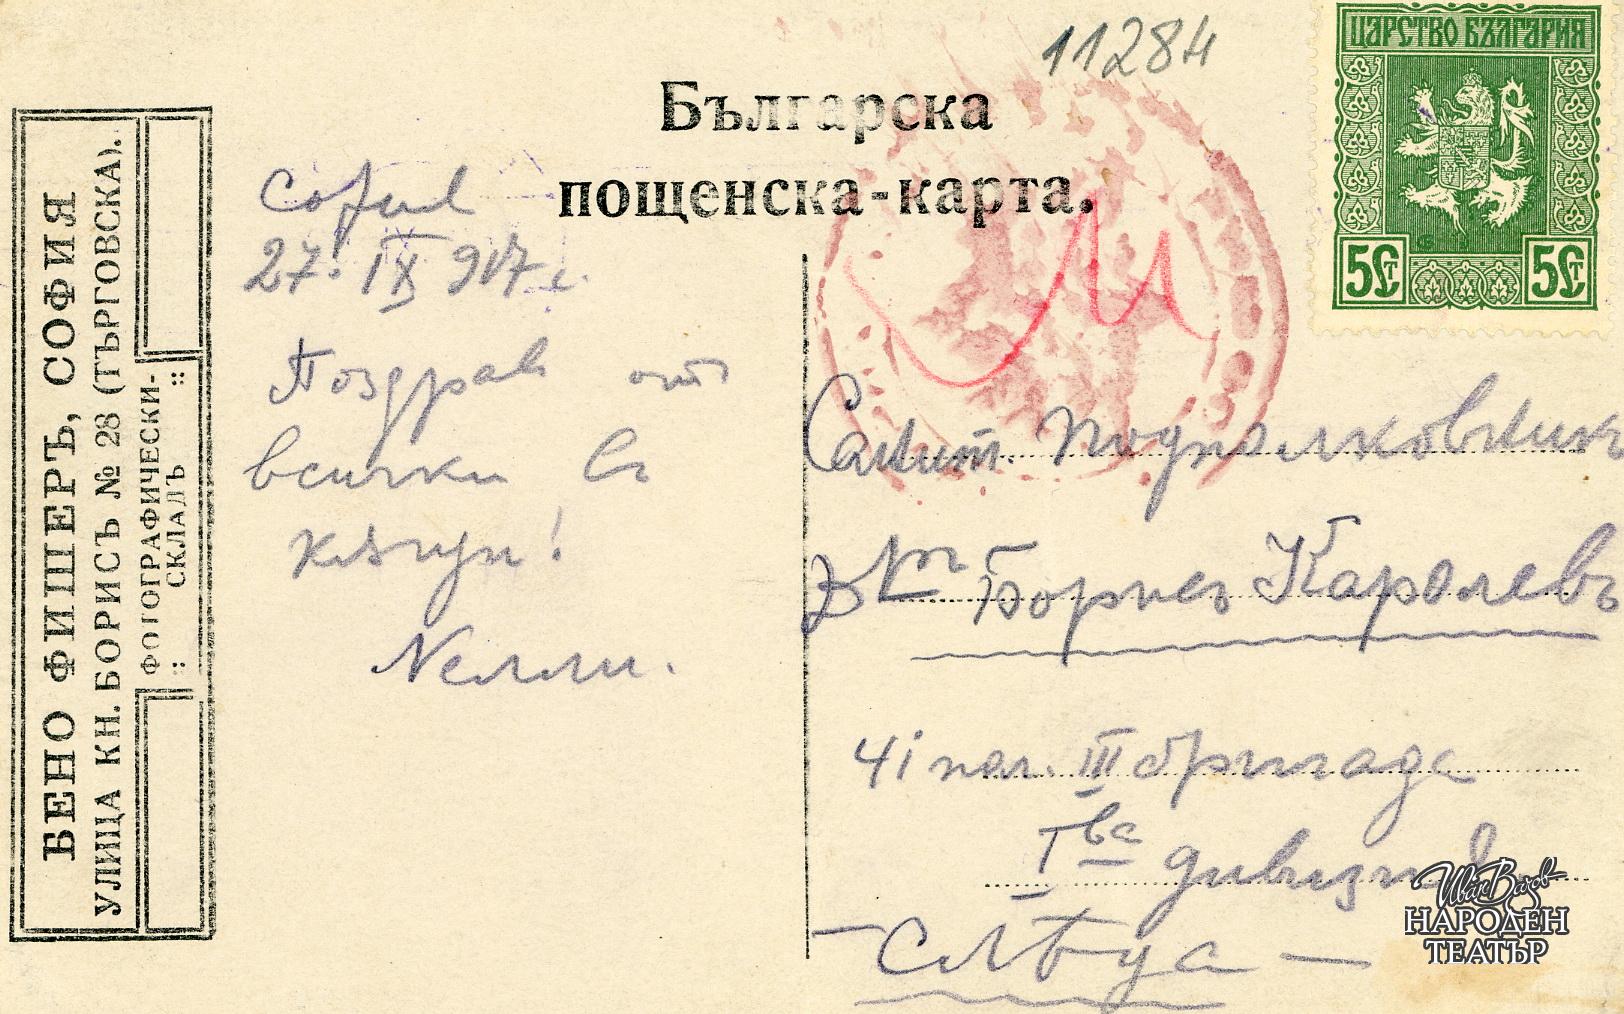 11284
ЦАРСТВО БЪЛГАРИЯ
5 СТ 5 СТ
Българска
пощенска-карта.
БЕНО ФИШЕРЪ, СОФИЯ
УЛИЦА КН. БОРИСЪ № 28 (ТЪРГОВСКА).
ФОТОГРАФИЧЕСКИ-
:: СКЛАДЪ ::
София
27. IX 917 г.
Поздрав отъ
всички въ
кѫщи!
Нелли.
Санит. Подполковникъ
Борисъ Каролевъ
41 пол. III бригада
I ва дивизия
Иван Вазов
НАРОДЕН
ТЕАТЪР